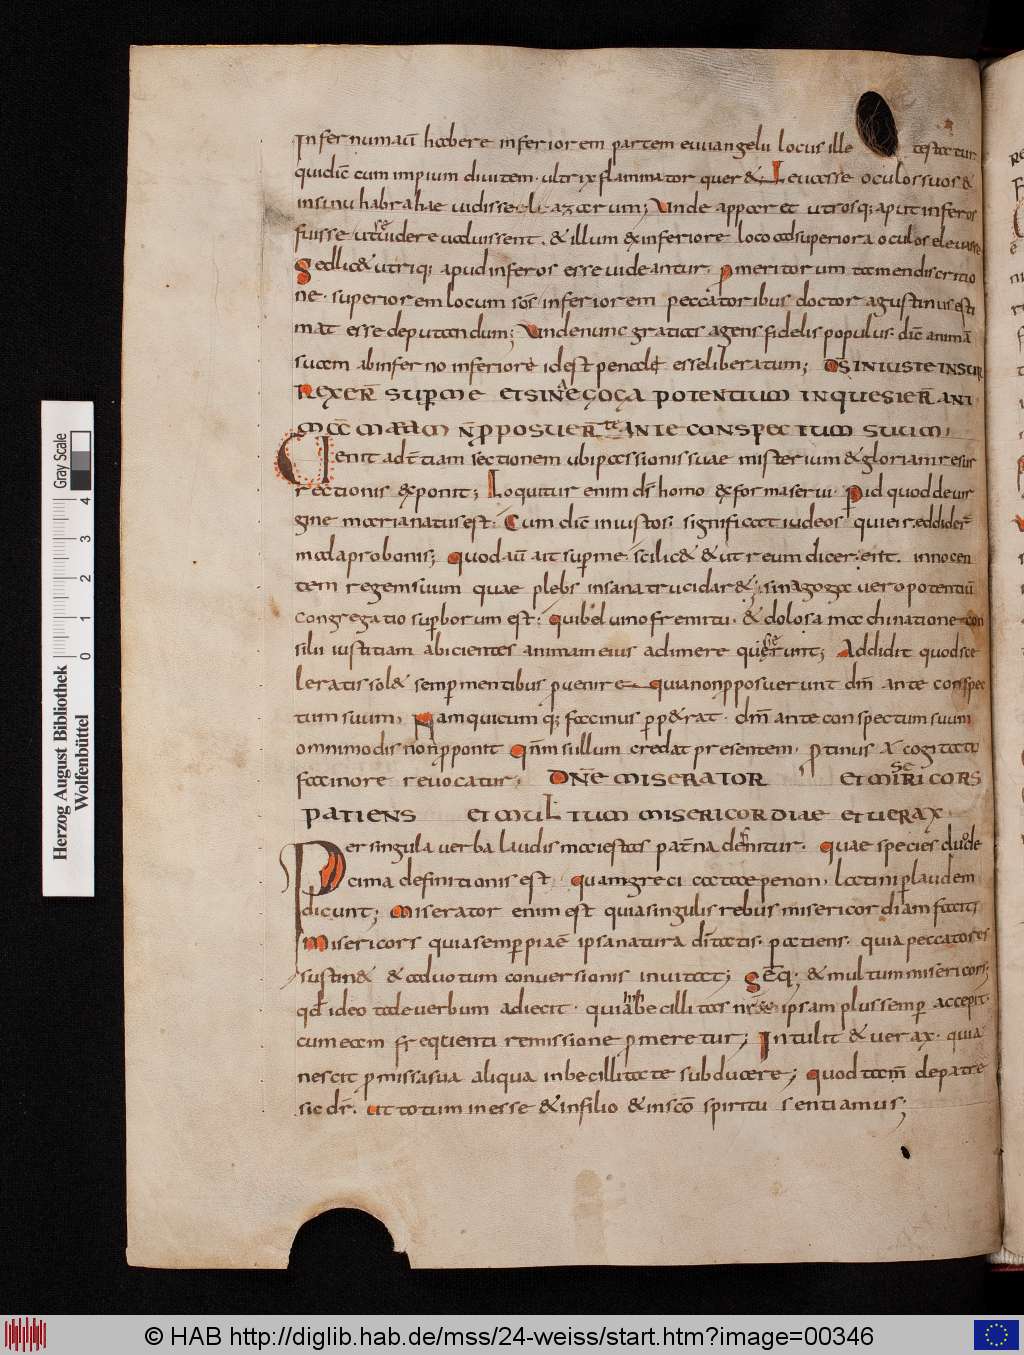 Infernum aū habere inferiorem partem euuangelii locus ille testatur
qui diē cum impium diuitem· ultrix flamma torquer&· Leuasse oculos suos &
in sinu habrahae uidisse eleazarum; Unde apparet utrosq; aput inferos
fuisse ut se uidere ualuissent· & illum ex inferiore loco ad superiora oculos eleuasse
Sed lic& utriq; apud inferos esse uideantur· p meritorum tamen discritio
ne· superiorem locum scōs· inferiorem peccatoribus doctor agustinus esti
mat esse deputandum; Unde nunc gratias agens fidelis populus· diē animā
suam ab inferno inferiore id est penale esse liberatum; DS INIUSTE INSUR
REXER̄ SUPER ME ET SINAGOGA POTENTIUM INQUESIER̄ ANI
MĀ MEAM N̄ PROPOSUER̄ TE ANTE CONSPECTUM SUUM·
Uenit ad t̄tiam sectionem ubi passionis suae misterium & gloriam resur
rectionis exponit; Loquitur enim dn̄s homo ex forma serui· Pid quod de uir
gine maria natus est· Cum diē iniustos· significat iudeos qui ei reddider̄
mala pro bonis; Quod aū ait super me· scilic& & ut reum dicer eiīt· innocen
tem regem suum quae plebs insana trucidar&; sinagoga uero potentiū
congregatio superborum est; Qui bel uino fremitu· & dolosa machinatione con
silii iustitiam abicientes animam eius adimere quesierunt; Addidit quod sce
leratis sol& semper mentibus puenire Quia non pposuerunt dm̄ ante conspec
tum suum; Nam quicumq; facinus pp&rat· dm̄ ante conspectum suum
omnimodis non pponit Qn̄m si illum credat presentem· ptinus a cogitato
facinore reuocatur; DN̄E MISERATOR ET MISERICORS
PATIENS ET MULTUM MISERICORDIAE ET UERAX·
Per singula uerba laudis maiestas pat̄na defnitur· Quae species duode
cima definitionis est· quam greci catatepenon· latini p laudem
dicunt; Miserator enim est quia singulis rebus misericordiam facit;
Misericors quia semper piae ipsa natura ditatis· patiens· quia peccatores
sustin& & ad uotum conuersionis inuitat; Seq; & multum misericors;
qd ideo tale uerbum adiecit· quia inbecillitas nr̄a ipsam plus semper accepit·
cum eam frequenti remissione pmeretur; Intulit & uerax· quia
nescit pmissa sua aliqua inbecillitate subducere; Quod tam̄ de patre
sic dr̄· Ut totum in esse & in filio & in scō spiritu sentiamus;
Herzog August Bibliothek
Wolfenbüttel
Gray Scale
0 1 2 3 4
© HAB http://diglib.hab.de/mss/24-weiss/start.htm?image=00346